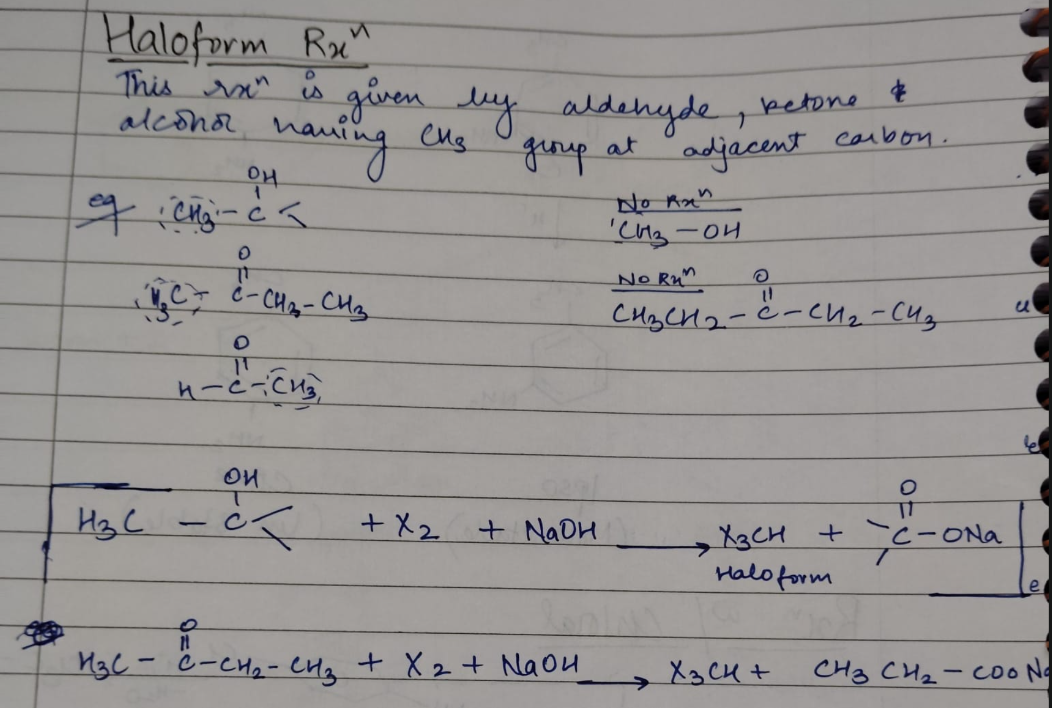 Haloform Rxⁿ
This rxⁿ is given by aldehyde, ketone &
alcohol having CH₃ group at adjacent carbon.
OH
eg CH₃ - C
No Rxⁿ
CH₃ - OH
O
H₃C - C - CH₂ - CH₃
No Rxⁿ
O
CH₃CH₂ - C - CH₂ - CH₃
O
H - C - CH₃
OH
H₃C - C + X₂ + NaOH → X₃CH + C - ONa
O
Haloform
O
H₃C - C - CH₂ - CH₃ + X₂ + NaOH → X₃CH + CH₃ CH₂ - COONa